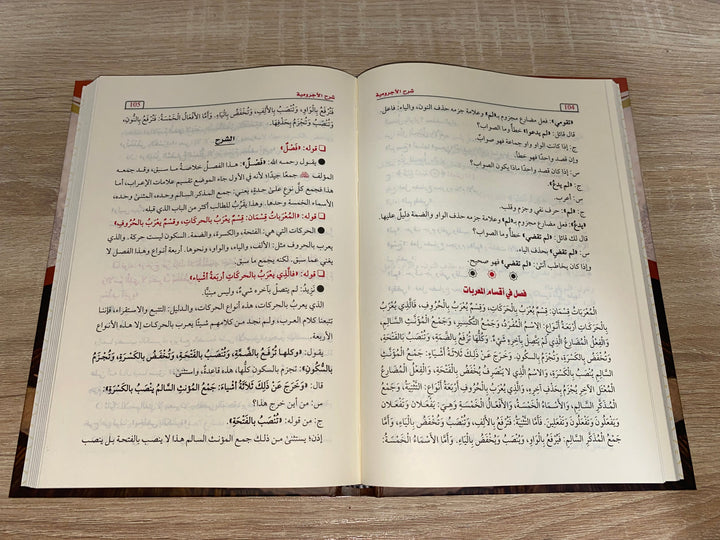 104
شرح الآجرومية
«تقومي»: فعل مضارع مجزوم بـ«لم» وعلامة جزمه حذف النون، والياء: فاعل.
قال قائل: «لم يدعوا» خطأ وما الصواب؟
ج: إذا كانت الواو واو جماعة فهو صوابٌ.
وإن قصد واحدًا فهو خطأ.
س: إذا كان قصد واحدًا ماذا يكون الصواب؟
ج: «لم يدعُ».
س: أعرب.
ج: «لم»: حرف نفي وجزم وقلب.
«يدعُ»: فعل مضارع مجزوم بـ«لم» وعلامة جزمه حذف الواو والضمة دليلٌ عليها.
قال لك قائل: «لم تقضي» خطأ وما الصواب؟
س: «لم تقضِ» بحذف الياء.
وإذا كان يخاطب أنثى: «لم تقضي» فهو صحيح.
فصل في أقسام المعربات
الْمُعْرَبَاتُ قِسْمَانِ: قِسْمٌ يُعْرَبُ بِالْحَرَكَاتِ، وَقِسْمٌ يُعْرَبُ بِالْحُرُوفِ. فَالَّذِي يُعْرَبُ
بِالْحَرَكَاتِ أَرْبَعَةُ أَنْوَاعٍ: الِاسْمُ الْمُفْرَدُ، وَجَمْعُ التَّكْسِيرِ، وَجَمْعُ الْمُؤَنَّثِ السَّالِمِ،
وَالْفِعْلُ الْمُضَارِعُ الَّذِي لَمْ يَتَّصِلْ بِآخِرِهِ شَيْءٌ، وَكُلُّهَا تُرْفَعُ بِالضَّمَّةِ، وَتُنْصَبُ بِالْفَتْحَةِ،
وَتُخْفَضُ بِالْكَسْرَةِ، وَتُجْزَمُ بِالسُّكُونِ. وَخَرَجَ عَنْ ذَلِكَ ثَلَاثَةُ أَشْيَاءَ: جَمْعُ الْمُؤَنَّثِ
السَّالِمُ يُنْصَبُ بِالْكَسْرَةِ، وَالِاسْمُ الَّذِي لَا يَنْصَرِفُ يُخْفَضُ بِالْفَتْحَةِ، وَالْفِعْلُ الْمُضَارِعُ
الْمُعْتَلُّ الْآخِرِ يُجْزَمُ بِحَذْفِ آخِرِهِ. وَالَّذِي يُعْرَبُ بِالْحُرُوفِ أَرْبَعَةُ أَنْوَاعٍ: التَّثْنِيَةُ، وَجَمْعُ
الْمُذَكَّرِ السَّالِمُ، وَالْأَسْمَاءُ الْخَمْسَةُ، وَالْأَفْعَالُ الْخَمْسَةُ وَهِيَ: يَفْعَلَانِ وَتَفْعَلَانِ
وَيَفْعَلُونَ وَتَفْعَلُونَ وَتَفْعَلِينَ. فَأَمَّا التَّثْنِيَةُ: فَتُرْفَعُ بِالْأَلِفِ، وَتُنْصَبُ وَتُخْفَضُ بِالْيَاءِ، وَأَمَّا
جَمْعُ الْمُذَكَّرِ السَّالِمِ: فَيُرْفَعُ بِالْوَاوِ، وَيُنْصَبُ وَيُخْفَضُ بِالْيَاءِ. وَأَمَّا الْأَسْمَاءُ الْخَمْسَةُ:
شرح الآجرومية
105
فَتُرْفَعُ بِالْوَاوِ، وَتُنْصَبُ بِالْأَلِفِ، وَتُخْفَضُ بِالْيَاءِ. وَأَمَّا الْأَفْعَالُ الْخَمْسَةُ: فَتُرْفَعُ بِالنُّونِ،
وَتُنْصَبُ وَتُجْزَمُ بِحَذْفِهَا.
الشرح
❑ قوله: «فَصْلٌ»
● يقول رحمه الله: «فَصْلٌ»: هذا الفصل خلاصة ما سبق، وقد جمعه
المؤلف جمعًا جيدًا؛ لأنه في الأول جاء الموضع تقسيم علامات الإعراب، أما
هذا فجمع كلَّ نوع على حدةٍ، يعني: جمع المذكر السالم وحده، المثنى وحده،
الأسماء الخمسة وحدها. وهذا يقرِّبُ للطالب أكثر من الباب الذي قبله.
❑ قوله: «الْمُعْرَبَاتُ قِسْمَانِ: قِسْمٌ يُعْرَبُ بِالْحَرَكَاتِ، وَقِسْمٌ يُعْرَبُ بِالْحُرُوفِ»
● الحركات التي هي: الفتحة، والكسرة، والضمة. السكون ليست حركة. والذي
يعرب بالحروف مثل: الألف، والياء، والواو، ونحوها. أربعة أنواع وهذا الفصل لا
يغني عما سبق. لكنه يجمع ما سبق.
❑ قوله: «فَالَّذِي يُعْرَبُ بِالحَرَكَاتِ أَرْبَعَةُ أَشْيَاء»
● نَزِيدُ: لم يتصل بآخره شيءٌ، وليس مبنيًّا.
الذي يعرب بالحركات، هذه أنواع الحركات، والدليل: التتبع والاستقراء، فإننا
تتبعنا كلام العرب، ولم نجد من كلامهم شيئًا يعرب بالحركات إلا هذه الأنواع
يقول: «وكلها تُرْفَعُ بِالضَّمَّةِ، وَتُنْصَبُ بِالْفَتْحَةِ، وَتُخْفَضُ بِالْكَسْرَةِ، وَتُجْزَمُ
بِالسُّكُونِ». هذه الحركات كلُّها، هذه قاعدة، واستثنى
قال: «وَخَرَجَ عَنْ ذَلِكَ ثَلَاثَةُ أَشْيَاءَ: جَمْعُ الْمُؤَنَّثِ السَّالِمُ يُنْصَبُ بِالْكَسْرَةِ»،
س: من أين خرج هذا؟
ج: من قوله: «تُنْصَبُ بِالْفَتْحَةِ».
إذن؛ يستثنى من ذلك جمع المؤنث السالم هذا لا ينصب بالفتحة بل ينصب